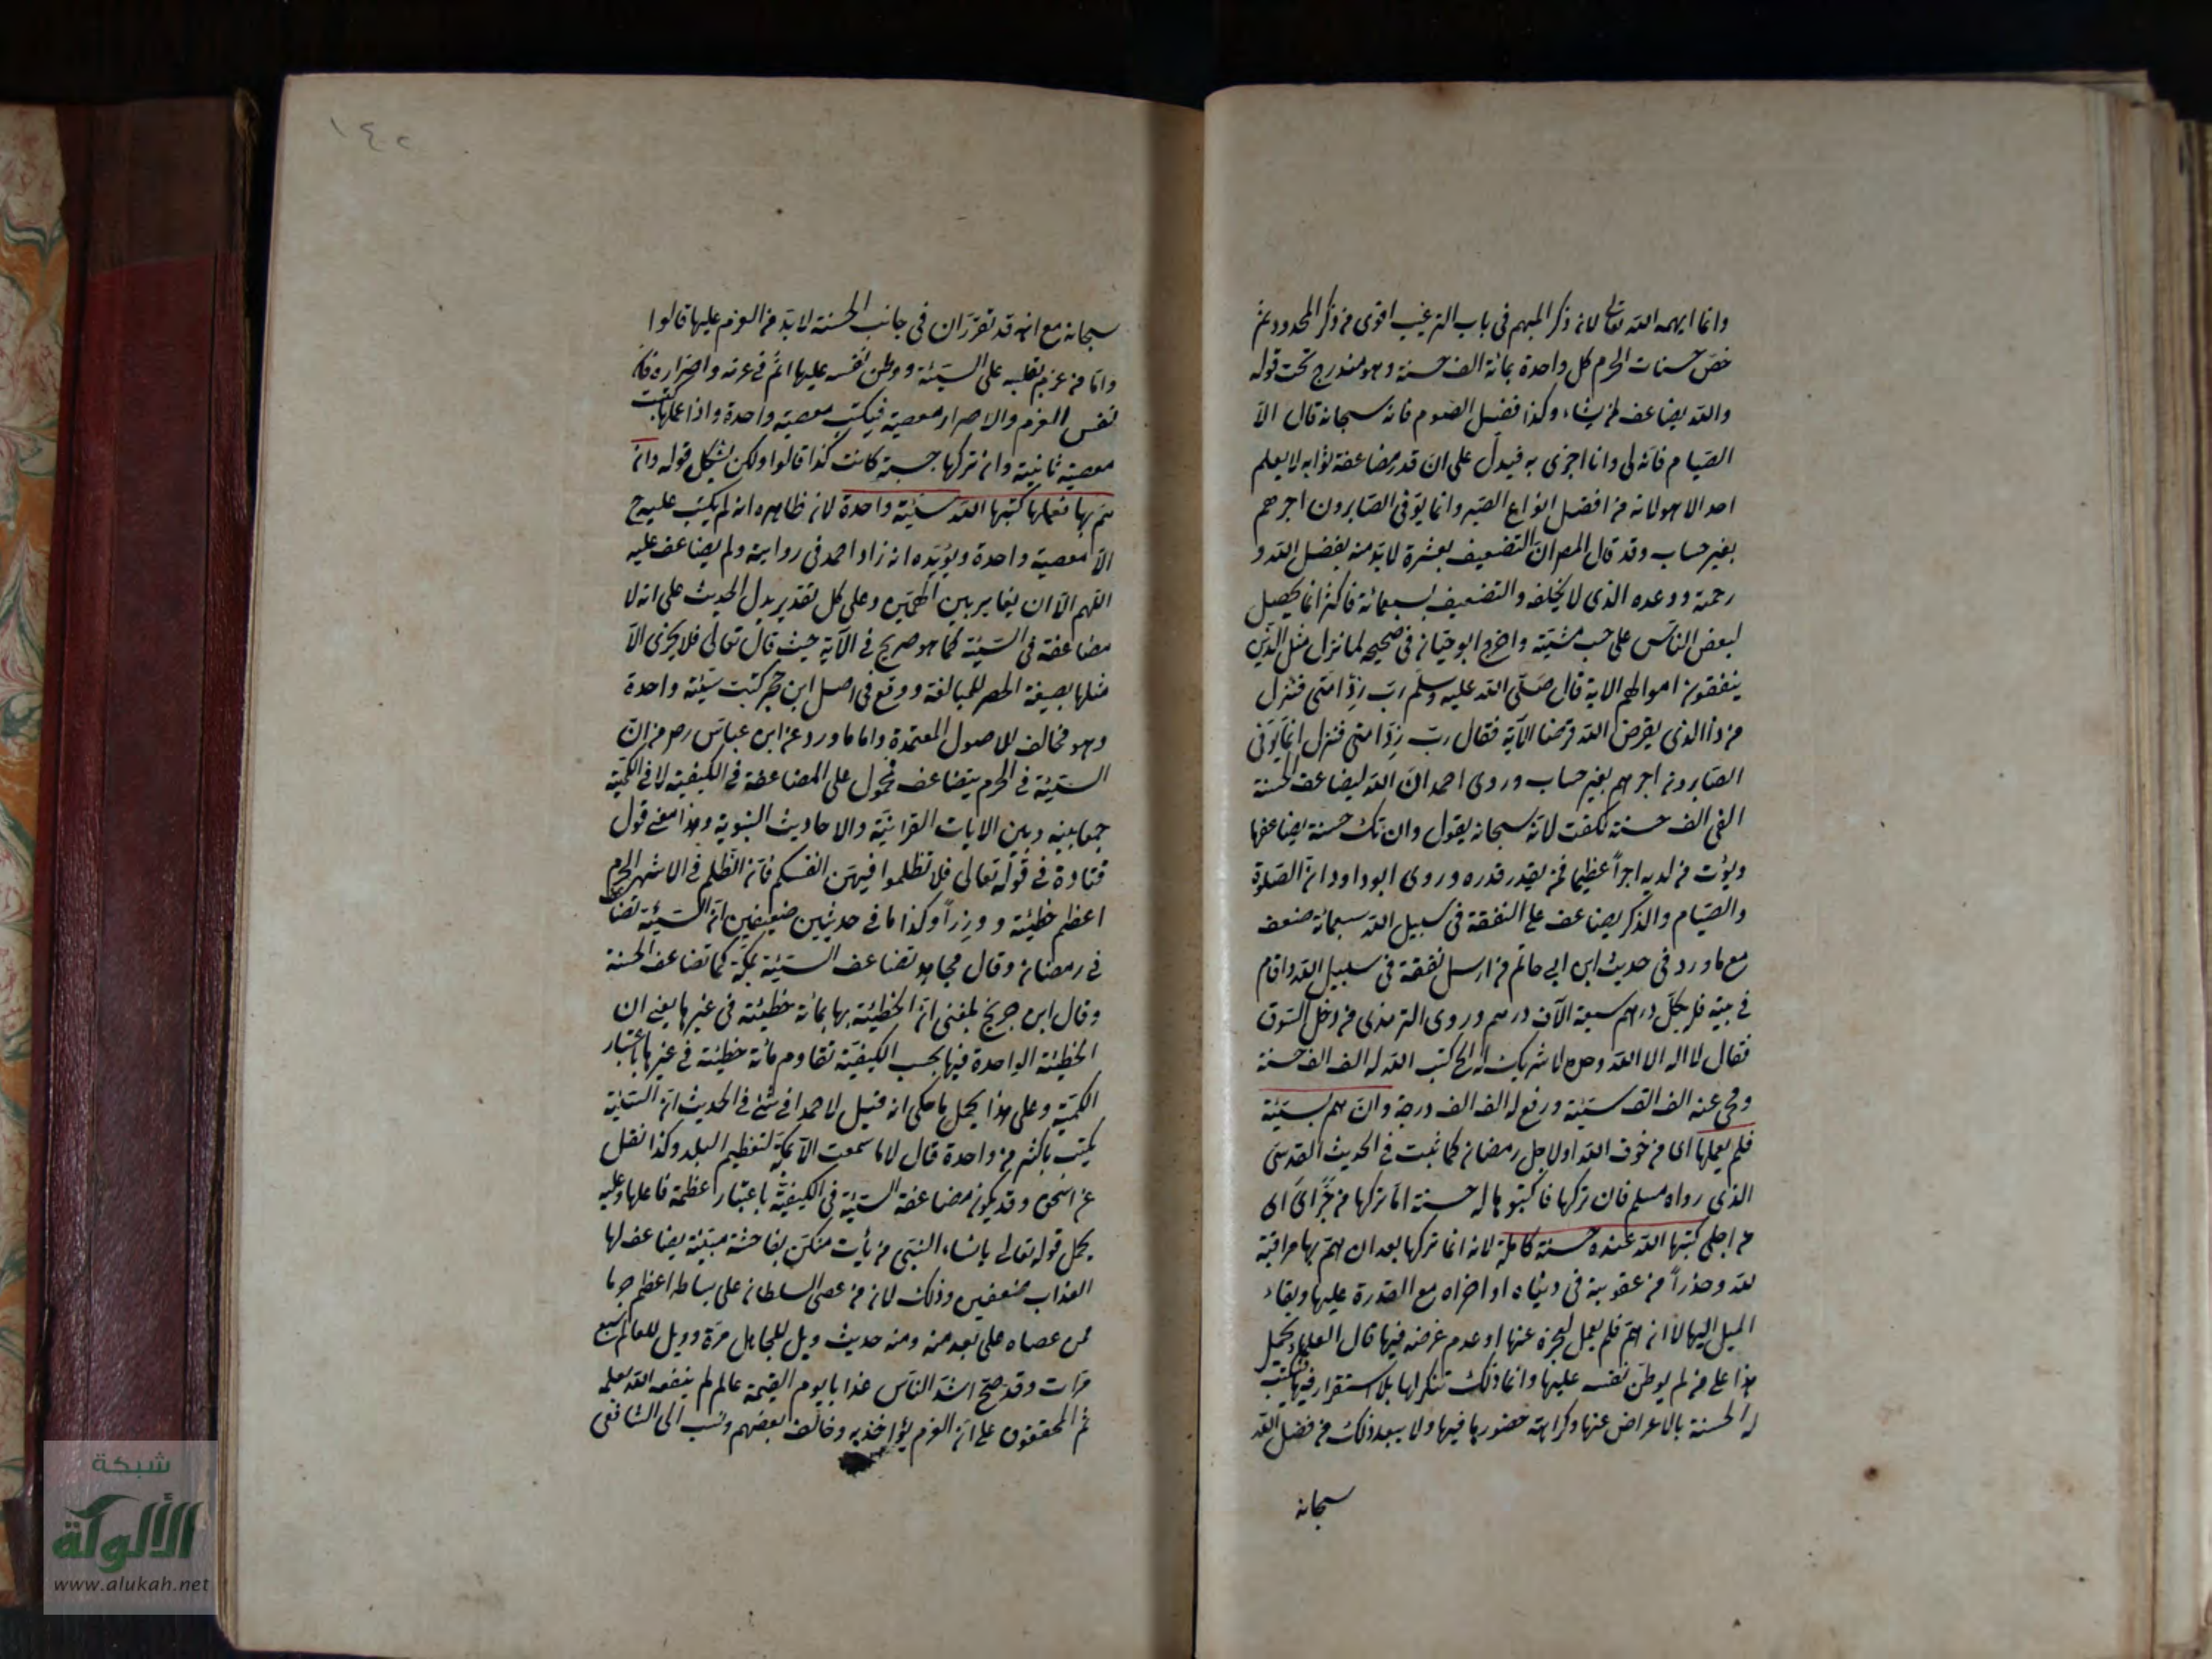 وانما ابهمه الله تعالى لانه ذكر المبهم في باب الترغيب اقوى من ذكر المحدود ثم
خص حسنات الحرم كل واحدة بمائة الف حسنة وهو مندرج تحت قوله
والله يضاعف لمن يشاء وكذا فضل الصوم فانه سبحانه قال الا
الصيام فانه لي وانا اجزى به فيدل على ان قدر مضاعفة ثوابه لا يعلم
احد الا هو لانه من افضل انواع الصبر وانما يوفى الصابرون اجرهم
بغير حساب وقد قال المص ان التضعيف بعشرة لا بد منه بفضل الله و
رحمته ووعده الذي لا يخلفه والتضعيف بسبعمائة فاكثر انما يحصل
لبعض الناس على حسب مشيته واخرج ابو حبان في صحيحه لما نزل مثل الذين
ينفقون اموالهم الاية قال صلى الله عليه وسلم رب زد امتي فنزل
من ذا الذي يقرض الله قرضا الآية فقال رب زد امتي فنزل انما يوفى
الصابرون اجرهم بغير حساب وروى احمد ان الله ليضاعف الحسنة
الفى الف حسنة لانه سبحانه يقول وان تك حسنة يضاعفها
ويؤت من لدنه اجراً عظيما فمن يقدر قدره وروى ابو داود ان الصلوة
والصيام والذكر يضاعف على النفقة في سبيل الله سبعمائة ضعف
مع ما ورد في حديث ابن ابي حاتم من ارسل نفقة في سبيل الله واقام
في بيته فله بكل درهم سبعة الآف درهم وروى الترمذي من دخل السوق
فقال لا اله الا الله وحده لا شريك له الخ كتب الله له الف الف حسنة
ومحى عنه الف الف سيئة ورفع له الف الف درجة وان هم بسيئة
فلم يعملها اى من خوف الله او لاجل رمضان كما ثبت في الحديث القدسي
الذي رواه مسلم فان تركها فاكتبوها له حسنة انما تركها من جرائ اى
من اجلى كتبها الله عنده حسنة كاملة لانه انما تركها بعد ان هم بها مراقبة
لله وحذراً من عقوبته في دنياه او اخراه مع القدرة عليها وبقاء
الميل اليها لا انه هم فلم يعمل لعجزه عنها او عدم غرضه فيها قال العلماء يحمل
هذا على من لم يوطن نفسه عليها وانما ذلك بلا استقرار فيها فتكتب
له الحسنة بالاعراض عنها وكراهة حضورها فيها ولا يبعد ذلك من فضل الله
سبحانه
١٤٢
سبحانه مع انه قد تقرر ان في جانب الحسنة لا بد من العزم عليها قالوا
واما من عزم بقلبه على السيئة ووطن نفسه عليها اثم في عزمه واصراره فان
نفس العزم والاصرار معصية فيكتب معصية واحدة واذا عملها كتبت
معصية ثانية وان تركها حسنة كانت كذا قالوا ولكن يشكل قوله وان
هم بها فعملها كتبها الله سيئة واحدة لان ظاهره انه لم يكتب عليه ح
الا معصية واحدة ويؤيده انه زاد احمد في رواية ولم يضاعف عليه
اللهم الا ان يغاير بين الهمين وعلى كل تقدير يدل الحديث على انه لا
مضاعفة في السيئة كما هو صريح في الآية حيث قال تعالى فلا يجزى الا
مثلها بصيغة الحصر للمبالغة ووقع في اصل ابن حجر كتبت سيئة واحدة
وهو مخالف للاصول المعتمدة واما ما ورد عن ابن عباس رض من ان
السيئة في الحرم يتضاعف فمحمول على المضاعفة في الكيفية لا في الكمية
جمعا بينه وبين الايات القرانية والاحاديث النبوية وهذا معنى قول
قتادة في قوله تعالى فلا تظلموا فيهن انفسكم فان الظلم في الاشهر الحرم
اعظم خطيئة ووزراً وكذا ما في حديثين ضعيفين ان السيئة تضاعف
في رمضان وقال مجاهد تضاعف السيئة بمكة كما تضاعف الحسنة
وقال ابن جريج بلغني ان الخطيئة بها بمائة خطيئة في غيرها يعني ان
الخطيئة الواحدة فيها بحسب الكيفية تقاوم مائة خطيئة في غيرها باعتبار
الكمية وعلى هذا يحمل ما حكى انه قيل لاحمد افي شئ في الحديث ان السيئة
يكتب باكثر من واحدة قال لا ما سمعت الا بمكة لتعظيم البلد وكذا نقل
عن اسحق وقد يكون مضاعفة السيئة في الكيفية باعتبار عظمة فاعلها وعليه
يحمل قوله تعالى يا نساء النبي من يأت منكن بفاحشة مبينة يضاعف لها
العذاب ضعفين وذلك لان من عصى السلطان على بساطه اعظم جرما
ممن عصاه على بعد منه ومنه حديث ويل للجاهل مرة وويل للعالم سبع
مرات وقد صح اشد الناس عذابا يوم القيمة عالم لم ينفعه الله بعلمه
ثم المحققون على ان العزم يؤاخذ به وخالف بعضهم ونسب الى الشافعي
شبكة
الألوكة
www.alukah.net